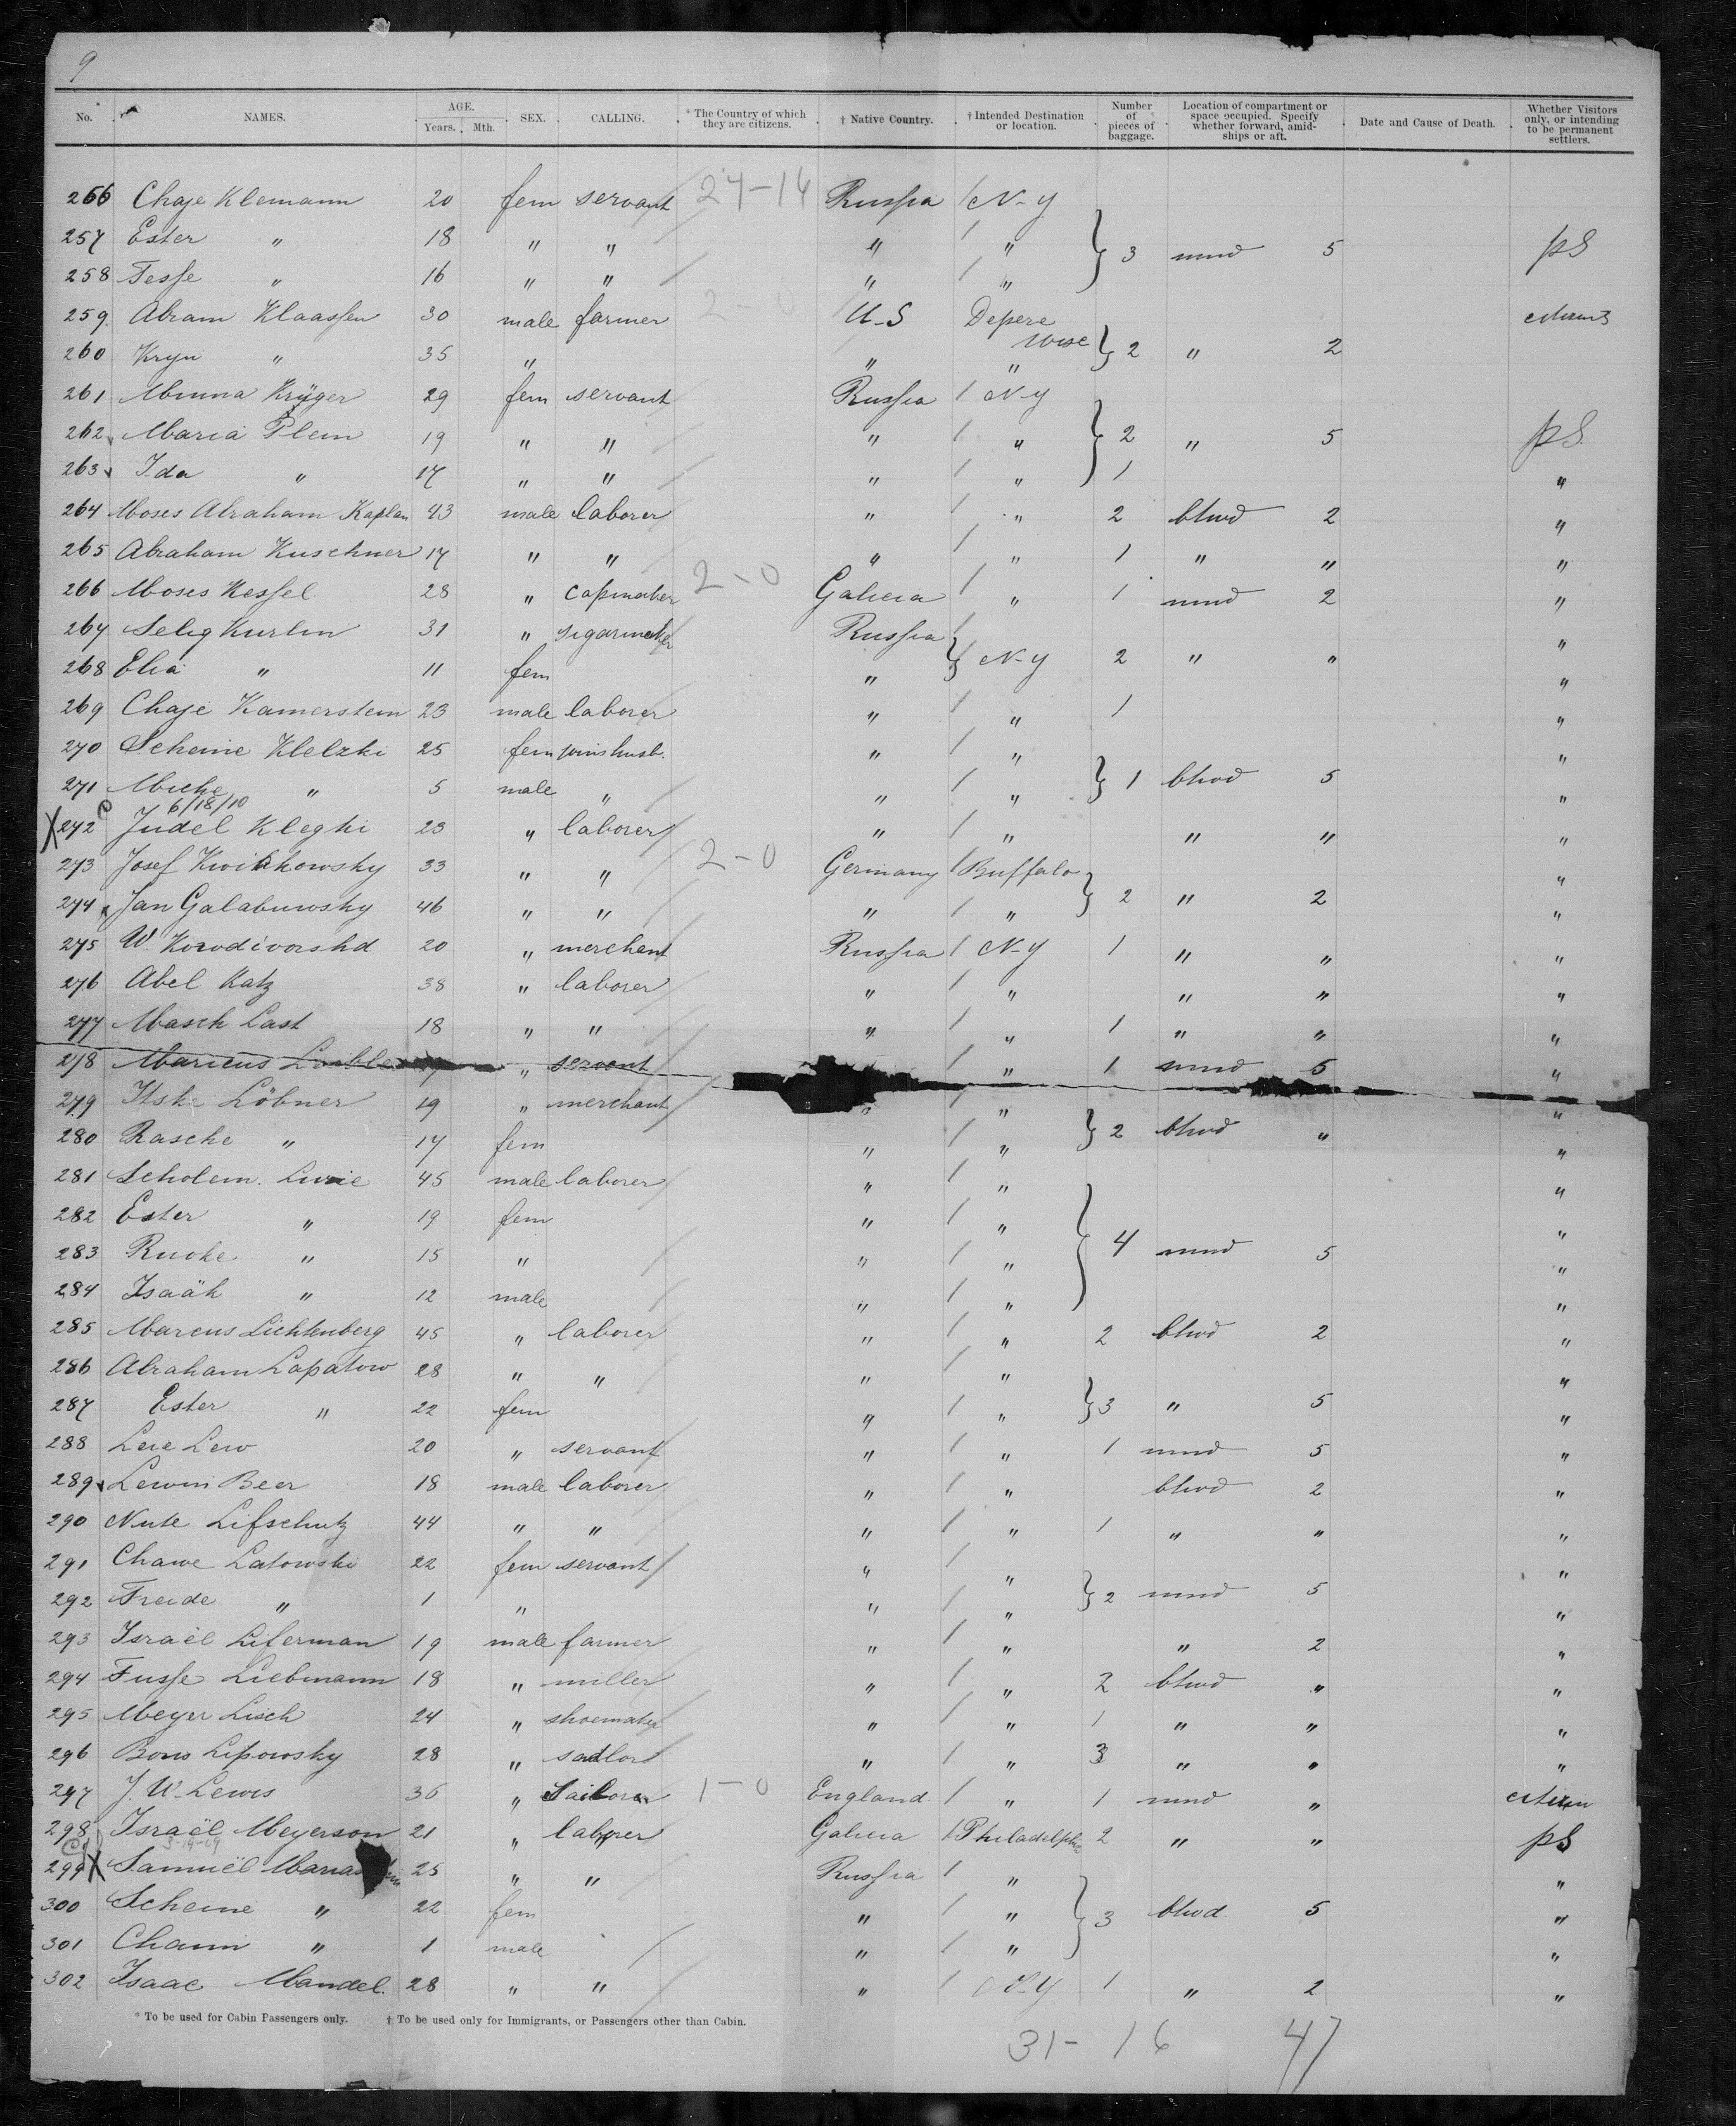 9
No. NAMES. AGE. Years. Mth. SEX. CALLING. * The Country of which they are citizens. † Native Country. † Intended Destination or location. Number of pieces of baggage. Location of compartment or space occupied. Specify whether forward, amidships or aft. Date and Cause of Death. Whether Visitors only, or intending to be permanent settlers.
266 Chaje Klemann 20 fem servant 24-14 Russia / N-Y
257 Ester " 18 " " " / " } 3 mnd 5 pS
258 Tesse " 16 " " " / "
259 Abram Klaassen 30 male farmer 2-0 U-S Depere Wisc
260 Kryn " 35 " " " } 2 " 2
261 Minna Krÿger 29 fem servant Russia / N-Y
262 Maria Plein 19 " " " / " } 2 " 5 pS
263 Ida " 17 " " " / " 1 "
264 Moses Abraham Kaplan 43 male laborer " / " 2 bhwd 2 "
265 Abraham Kuschner 17 " " " / " 1 " " "
266 Moses Kessel 28 " capmaker 2-0 Galicia / " 1 mnd 2 "
267 Selig Kurlin 31 " sigarmaker Russia / "
268 Elia " 11 fem " } N-Y 2 " " "
269 Chaje Kamerstein 23 male laborer " / " 1 "
270 Scheine Klelzki 25 fem joins husb. " / " "
271 " 5 male " " / " } 1 bhwd 5 "
6/18/10
X 272 C Judel Kleghi 23 " laborer " / " " " "
273 Josef Kwiakowsky 33 " " 2-0 Germany / Buffalo "
274 Jan Galabuwsky 46 " " " / " } 2 " 2 "
275 W. 20 " merchant Russia / N-Y 1 " " "
276 Abel Katz 38 " laborer " / " " " "
277 Masch Last 18 " " " / " 1 " " "
278 Marcus " servant / " 1 mnd 5 "
279 Itske Löbner 19 " merchant " / " "
280 Rasche " 17 fem " / " } 2 bhwd " "
281 Scholem. Lurie 45 male laborer " / " "
282 Ester " 19 fem " / " "
283 Ruoke " 15 " " / " } 4 mnd 5 "
284 Isaäk " 12 male " / " "
285 Marcus Lichtenberg 45 " laborer " / " 2 bhwd 2 "
286 Abraham Lapatow 28 " " " / " "
287 Ester " 22 fem " / " } 3 " 5 "
288 Leie Lew 20 " servant " / " 1 mnd 5 "
289 Lewin Beer 18 male laborer " / " bhwd 2 "
290 Nute Lifschutz 44 " " " / " 1 " " "
291 Chawe Latowski 22 fem servant " / " "
292 Freide " 1 " " / " } 2 mnd 5 "
293 Israël Liferman 19 male farmer " / " " 2 "
294 Fusse Liebmann 18 " miller " / " 2 bhwd " "
295 Meyer Lisch 24 " shoemaker " / " 1 " " "
296 Boris Lipowsky 28 " " / " 3 " " "
297 J. W. Lewis 36 " 1-0 England / " 1 mnd " citizen
298 Israël Meyerson 21 " laborer Galicia / Philadelphia 2 " " pS
3-19-09
299 X Samuël 25 " " Russia / " "
300 Scheine " 22 fem " / " } 3 bhwd. 5 "
301 Chaim " 1 male " / " "
302 Isaac Mandel. 28 " " " / N-Y 1 " 2 "
* To be used for Cabin Passengers only. † To be used only for Immigrants, or Passengers other than Cabin.
31- 16 47